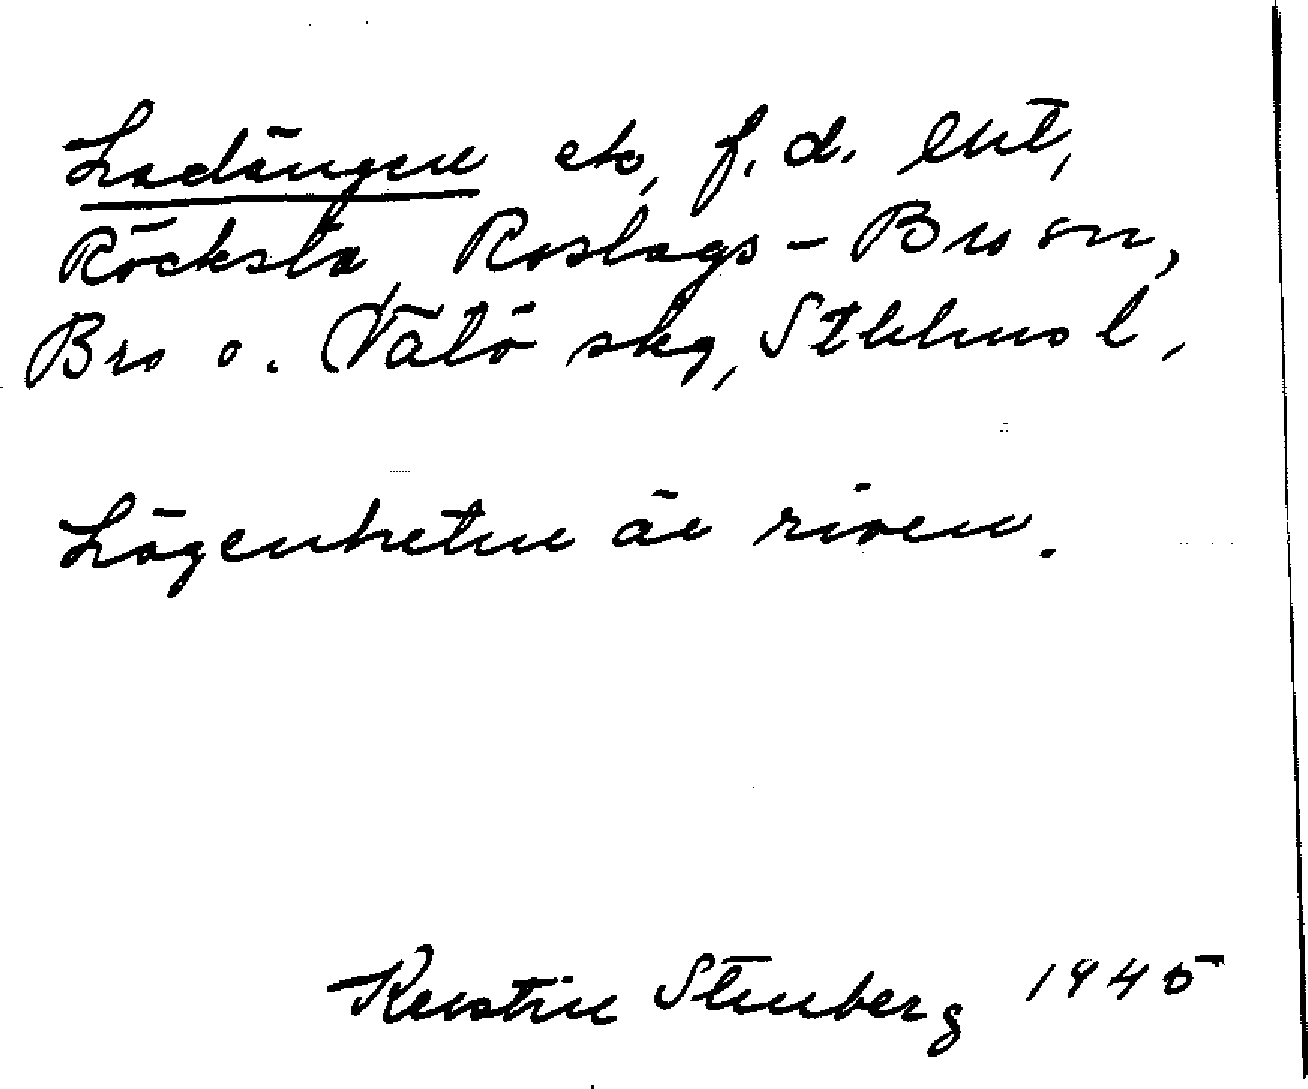 Ladängen etc, f.d. lht,
Röcksta Roslags-Bro sn,
Bro o. Vätö skg, Sthlms l,
Lägenheten är riven.
Kerstin Stenberg 1945